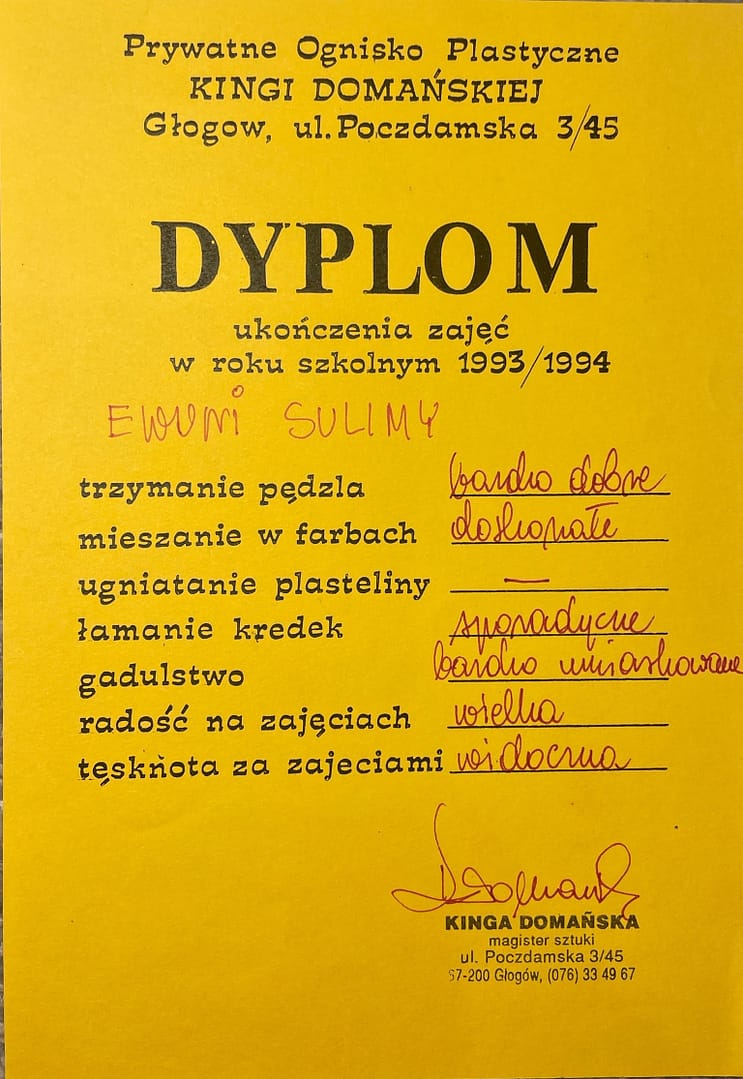 Prywatne Ognisko Plastyczne
KINGI DOMAŃSKIEJ
Głogow, ul. Poczdamska 3/45
DYPLOM
ukończenia zajęć
w roku szkolnym 1993/1994
EWUNI SULIMY
trzymanie pędzla bardzo dobre
mieszanie w farbach doskonałe
ugniatanie plasteliny —
łamanie kredek sporadyczne
gadulstwo bardzo umiarkowane
radość na zajęciach wielka
tęskńota za zajeciami widoczna
KINGA DOMAŃSKA
magister sztuki
ul. Poczdamska 3/45
67-200 Głogów, (076) 33 49 67